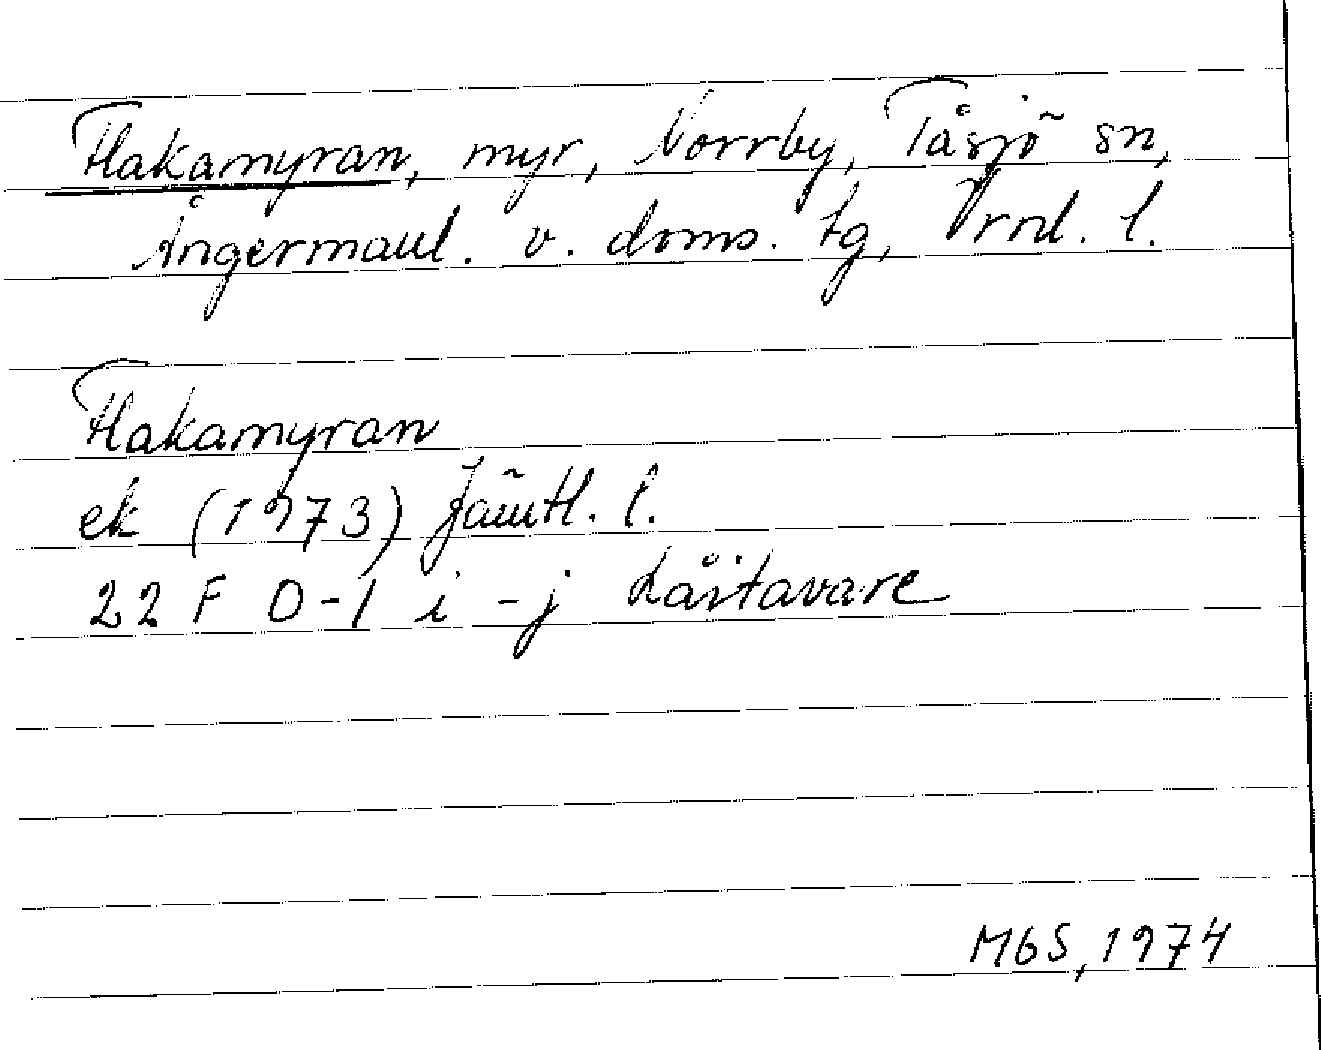 Flakamyran, myr, Norrby, Tåsjö sn,
Ångermanl. v. doms. tg, Vrnl. l.
Flakamyran
ek (1973) Jämtl. l.
22 F 0-1 i-j Låitavare
MGS, 1974